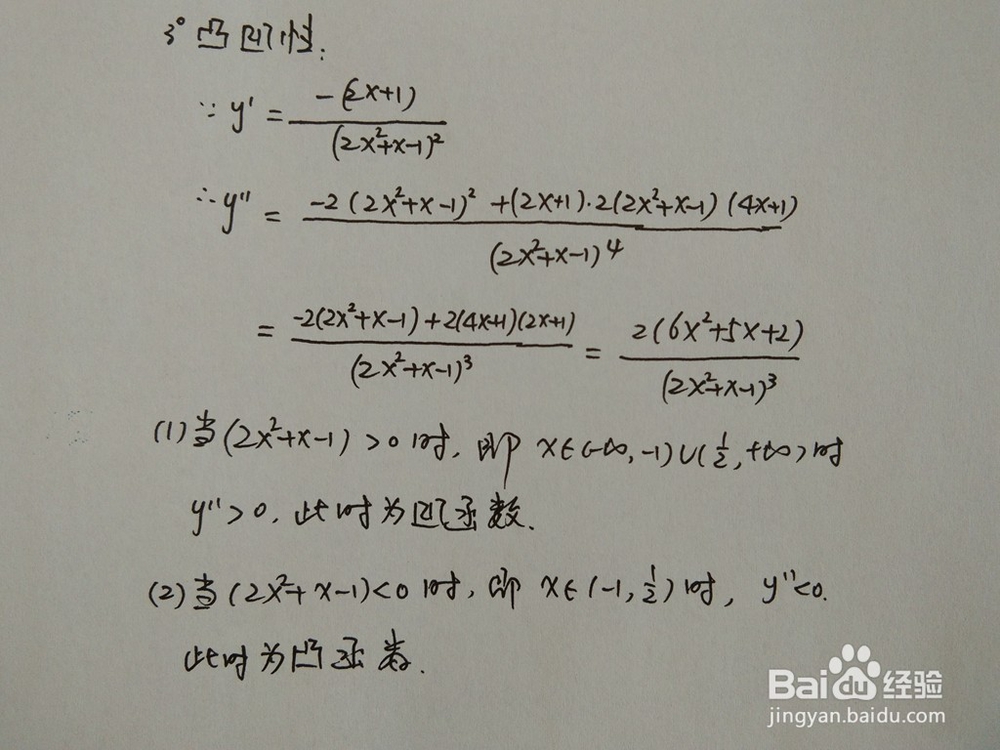 3° 凸凹性:
∵ y' = -(2x+1) / (2x²+x-1)²
∴ y'' = -2(2x²+x-1)² +(2x+1)·2(2x²+x-1)(4x+1) / (2x²+x-1)⁴
= -2(2x²+x-1)+2(4x+1)(2x+1) / (2x²+x-1)³ = 2(6x²+5x+2) / (2x²+x-1)³
(1)当(2x²+x-1)>0时,即 x∈(-∞,-1)∪(1/2,+∞)时
y''>0,此时为凹函数.
(2)当(2x²+x-1)<0时,即 x∈(-1,1/2)时, y''<0.
此时为凸函数.
Baidu经验
jingyan.baidu.com